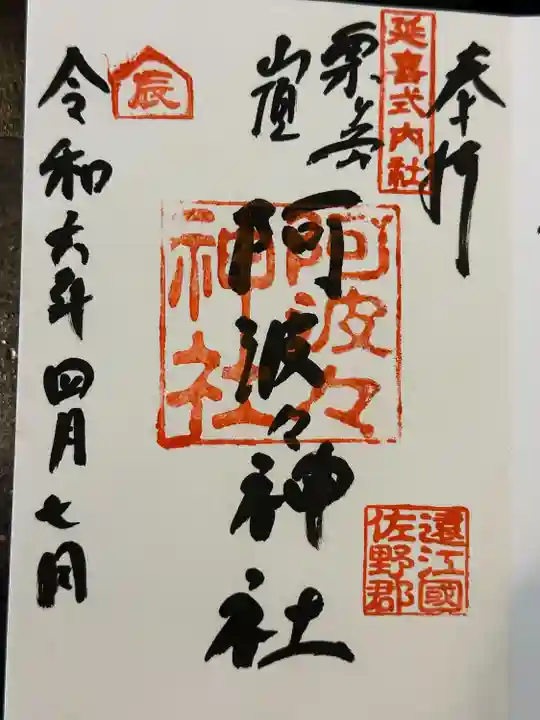 奉拝
延喜式内社
粟ヶ岳
山頂
阿波々神社
阿波々
神社
遠江國
佐野郡
辰
令和六年四月七日